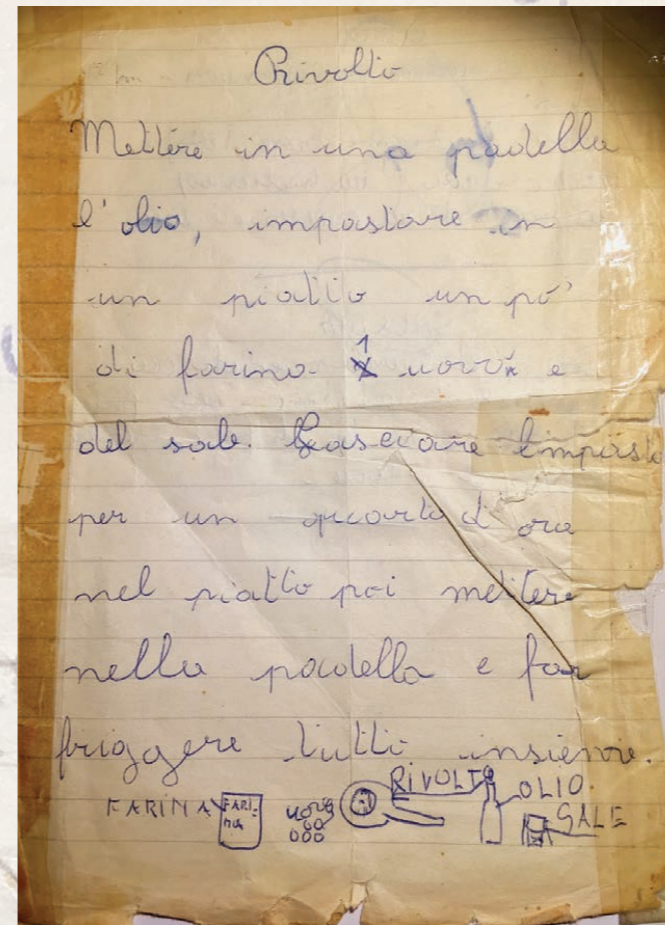 Rivolto
Mettere in una padella
l'olio, impastare in
un piatto un pò
di farina 1 uovo e
del sale. Lasciare l'impasto
per un quarto d'ora
nel piatto poi mettere
nella padella e far
friggere tutto insieme.
RIVOLTO
FARINA FARINA uova OLIO
SALE